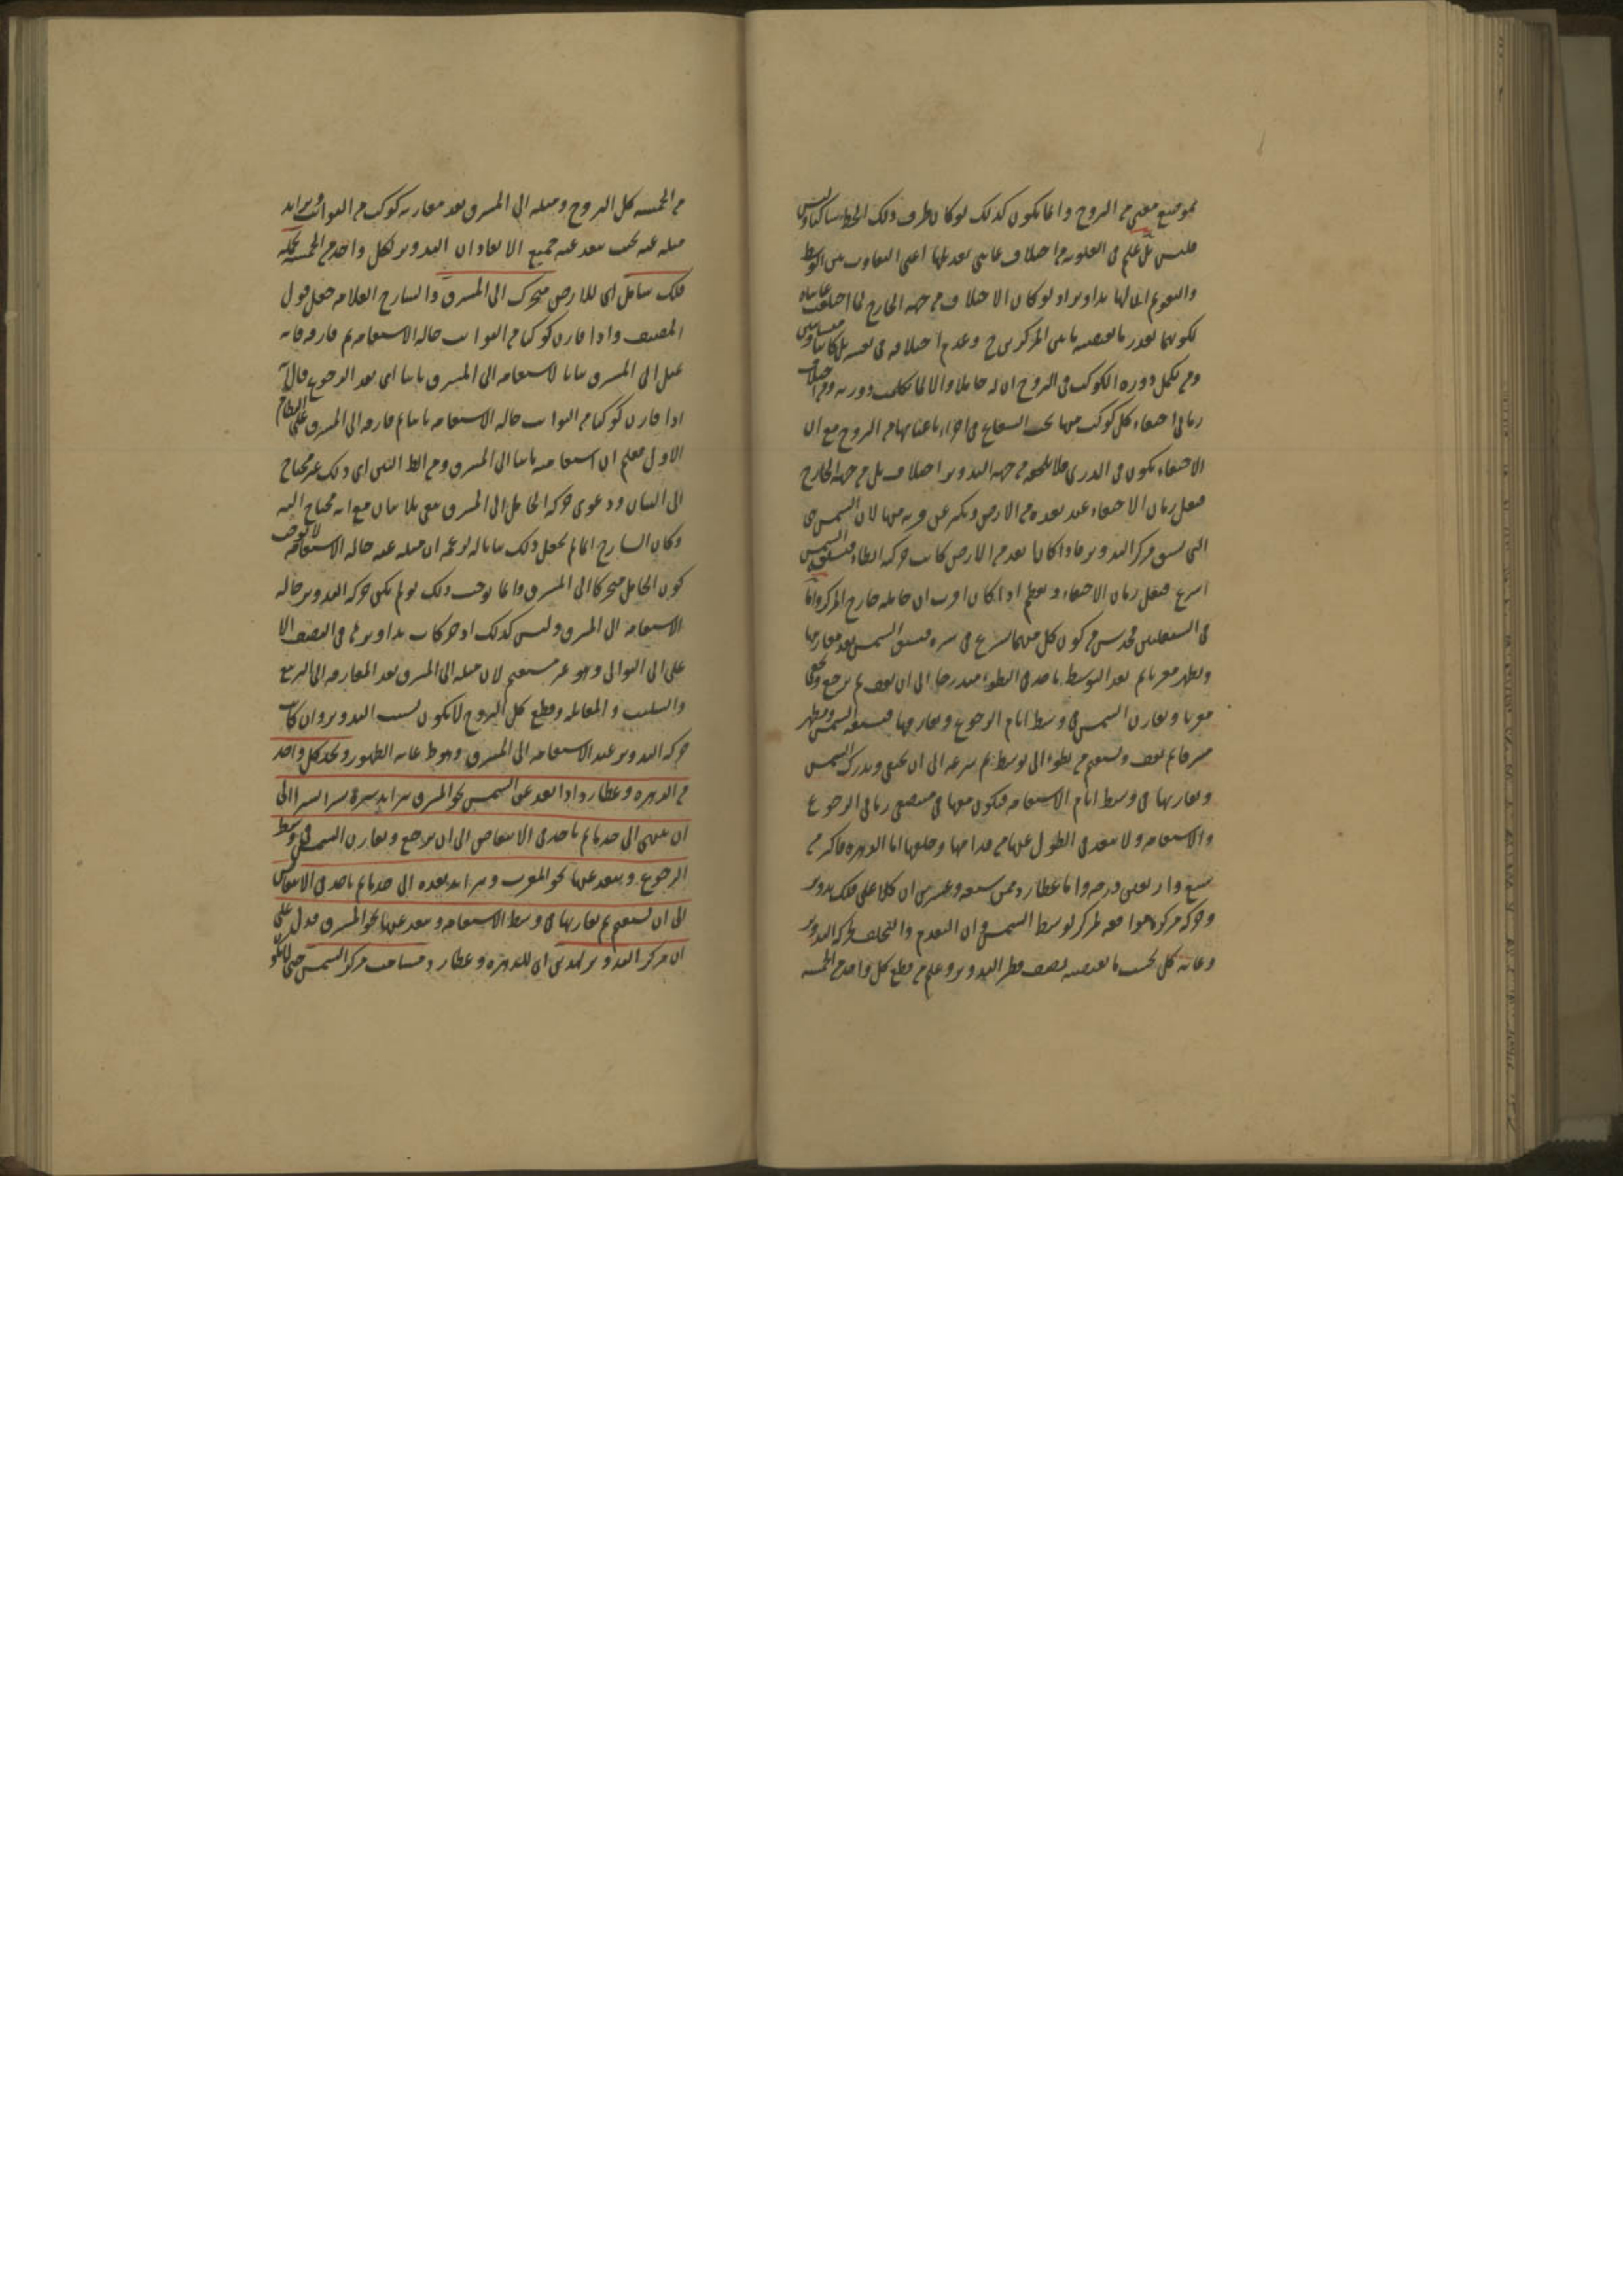 بموضع معين من البروج وانما يكون كذلك لو كان طرف ذلك الخط ساكنا وليس
فليس بل علم فى العلوية من اختلاف غايتى تعديلها اعنى التفاوت بين الوسط
والتقويم ان لها تداوير اذ لو كان الاختلاف من جهة الخارج لما اختلفت غايتاه
لكونهما بقدر ما يقتضيه ما بين المركزين ح وعدم اختلافه فى نفسه بل كانتا متساويتين
ومن تكمل دورة الكوكب فى البروج ان له حاملا والا لما تكملت دورته ومن اختلاف
زمانى اختفاء كل كوكب منها تحت الشعاع فى اجزاء باعيانها من البروج مع ان
الاختفاء يكون فى الذرى فلا يلحقه من جهة التدوير اختلاف بل من جهة الخارج
فيقل زمان الاختفاء عند بعده من الارض ويكثر عن قربه منها لان الشمس هى
التى تسبق مركز التدوير فاذا كان ابعد من الارض كانت حركته ابطاء فتسبقه الشمس
اسرع فيقل زمان الاختفاء ويعظم اذا كان اقرب ان حامله خارج المركز واما
فى السفليين فحدس من كون كل منهما يسرع فى سيره فيسبق الشمس بعد مقارنتها
ويظهر مغربا ثم بعد التوسط ياخذ فى البطوء متدرجا الى ان يقف ثم يرجع ويخفى
مغربا ويقارن الشمس فى وسط ايام الرجوع ويفارقها فتسبقه الشمس ويظهر
مشرقا ثم يقف ويستقيم من بطوء الى توسط ثم سرعة الى ان يختفى ويدرك الشمس
ويقارنها فى وسط ايام الاستقامة فيكون معها فى منتصفى زمانى الرجوع
والاستقامة ولا يبعد فى الطول عنها من قدامها وخلفها اما الزهرة فاكثر من
سبع واربعين درجة واما عطارد فمن سبعة وعشرين ان كلا على فلك تدوير
وحركة مركزه موافقة لمركز لوسط الشمس وان التقدم والتخلف بحركة التدوير
وغاية كل بحسب ما يقتضيه نصف قطر التدوير وعلم من قطع كل واحد من الخمسة
من الخمسة كل البروج وميله الى المشرق بعد مقارنة كوكب من الثوابت وتزايد
ميله عنه بحيث يبعد عنه جميع الابعاد ان التدوير لكل واحد من الخمسة يحمله
فلك شامل اى للارض متحرك الى المشرق والشارح العلامة جعل قول
المصنف واذا قارن كوكبا من الثوابت حالة الاستقامة ثم فارقه فانه
يميل الى المشرق بيانا لاستقامته الى المشرق ثانيا اى بعد الرجوع قال
اذا قارن كوكبا من الثوابت حالة الاستقامة ثانيا ثم فارقه الى المشرق على النظام
الاول فعلم ان استقامته ثانيا الى المشرق ومن الظ البين اى ذلك غير محتاج
الى البيان ودعوى حركة الحامل الى المشرق بقى بلا بيان مع انه محتاج اليه
وكان الشارح انما لم يجعل ذلك بيانا له لزعمه ان ميله عنه حالة الاستقامة لا توجب
كون الحامل متحركا الى المشرق وانما توجب ذلك لو لم تكن حركة التدوير حالة
الاستقامة الى المشرق وليس كذلك اذ حركات تداويرها فى النصف الا
على الى التوالى وهو غير مستقيم لان ميله الى المشرق بعد المفارقة الى التربيع
والتثليث والمقابلة وقطع كل البروج لا يكون بسبب التدوير وان كانت
حركة التدوير عند الاستقامة الى المشرق وهو ظ غاية الظهور ونجد كل واحد
من الزهرة وعطارد اذا بعد عن الشمس نحو المشرق تزايد سيره يسيرا يسيرا الى
ان ينتهى الى حد ما ثم ياخذ فى الانتقاص الى ان يرجع ويقارن الشمس فى وسط
الرجوع ويبعد عنها نحو المغرب ويتزايد بعده الى حد ما ثم ياخذ فى الانتقاص
الى ان يستقيم ثم يقارنها فى وسط الاستقامة ويبعد عنها نحو المشرق فدل على
ان مركز التدوير لهذين اى للزهرة وعطارد مسامت مركز الشمس حتى